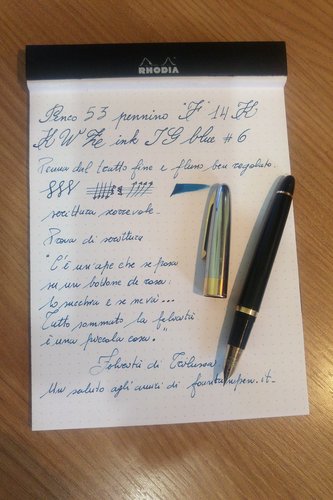 RHODIA
Penco 53 pennino "F" 14 K
K W Ze ink TG blue # 6
Penna dal tratto fine e flusso ben regolato.
scrittura scorrevole.
Prova di scrittura
"C'è un'ape che se posa
su un bottone de rosa:
lo succhia e se ne va...
Tutto sommato la felicità
è una piccola cosa."
Felicità di Trilussa
Un saluto agli amici di fountainpen.it